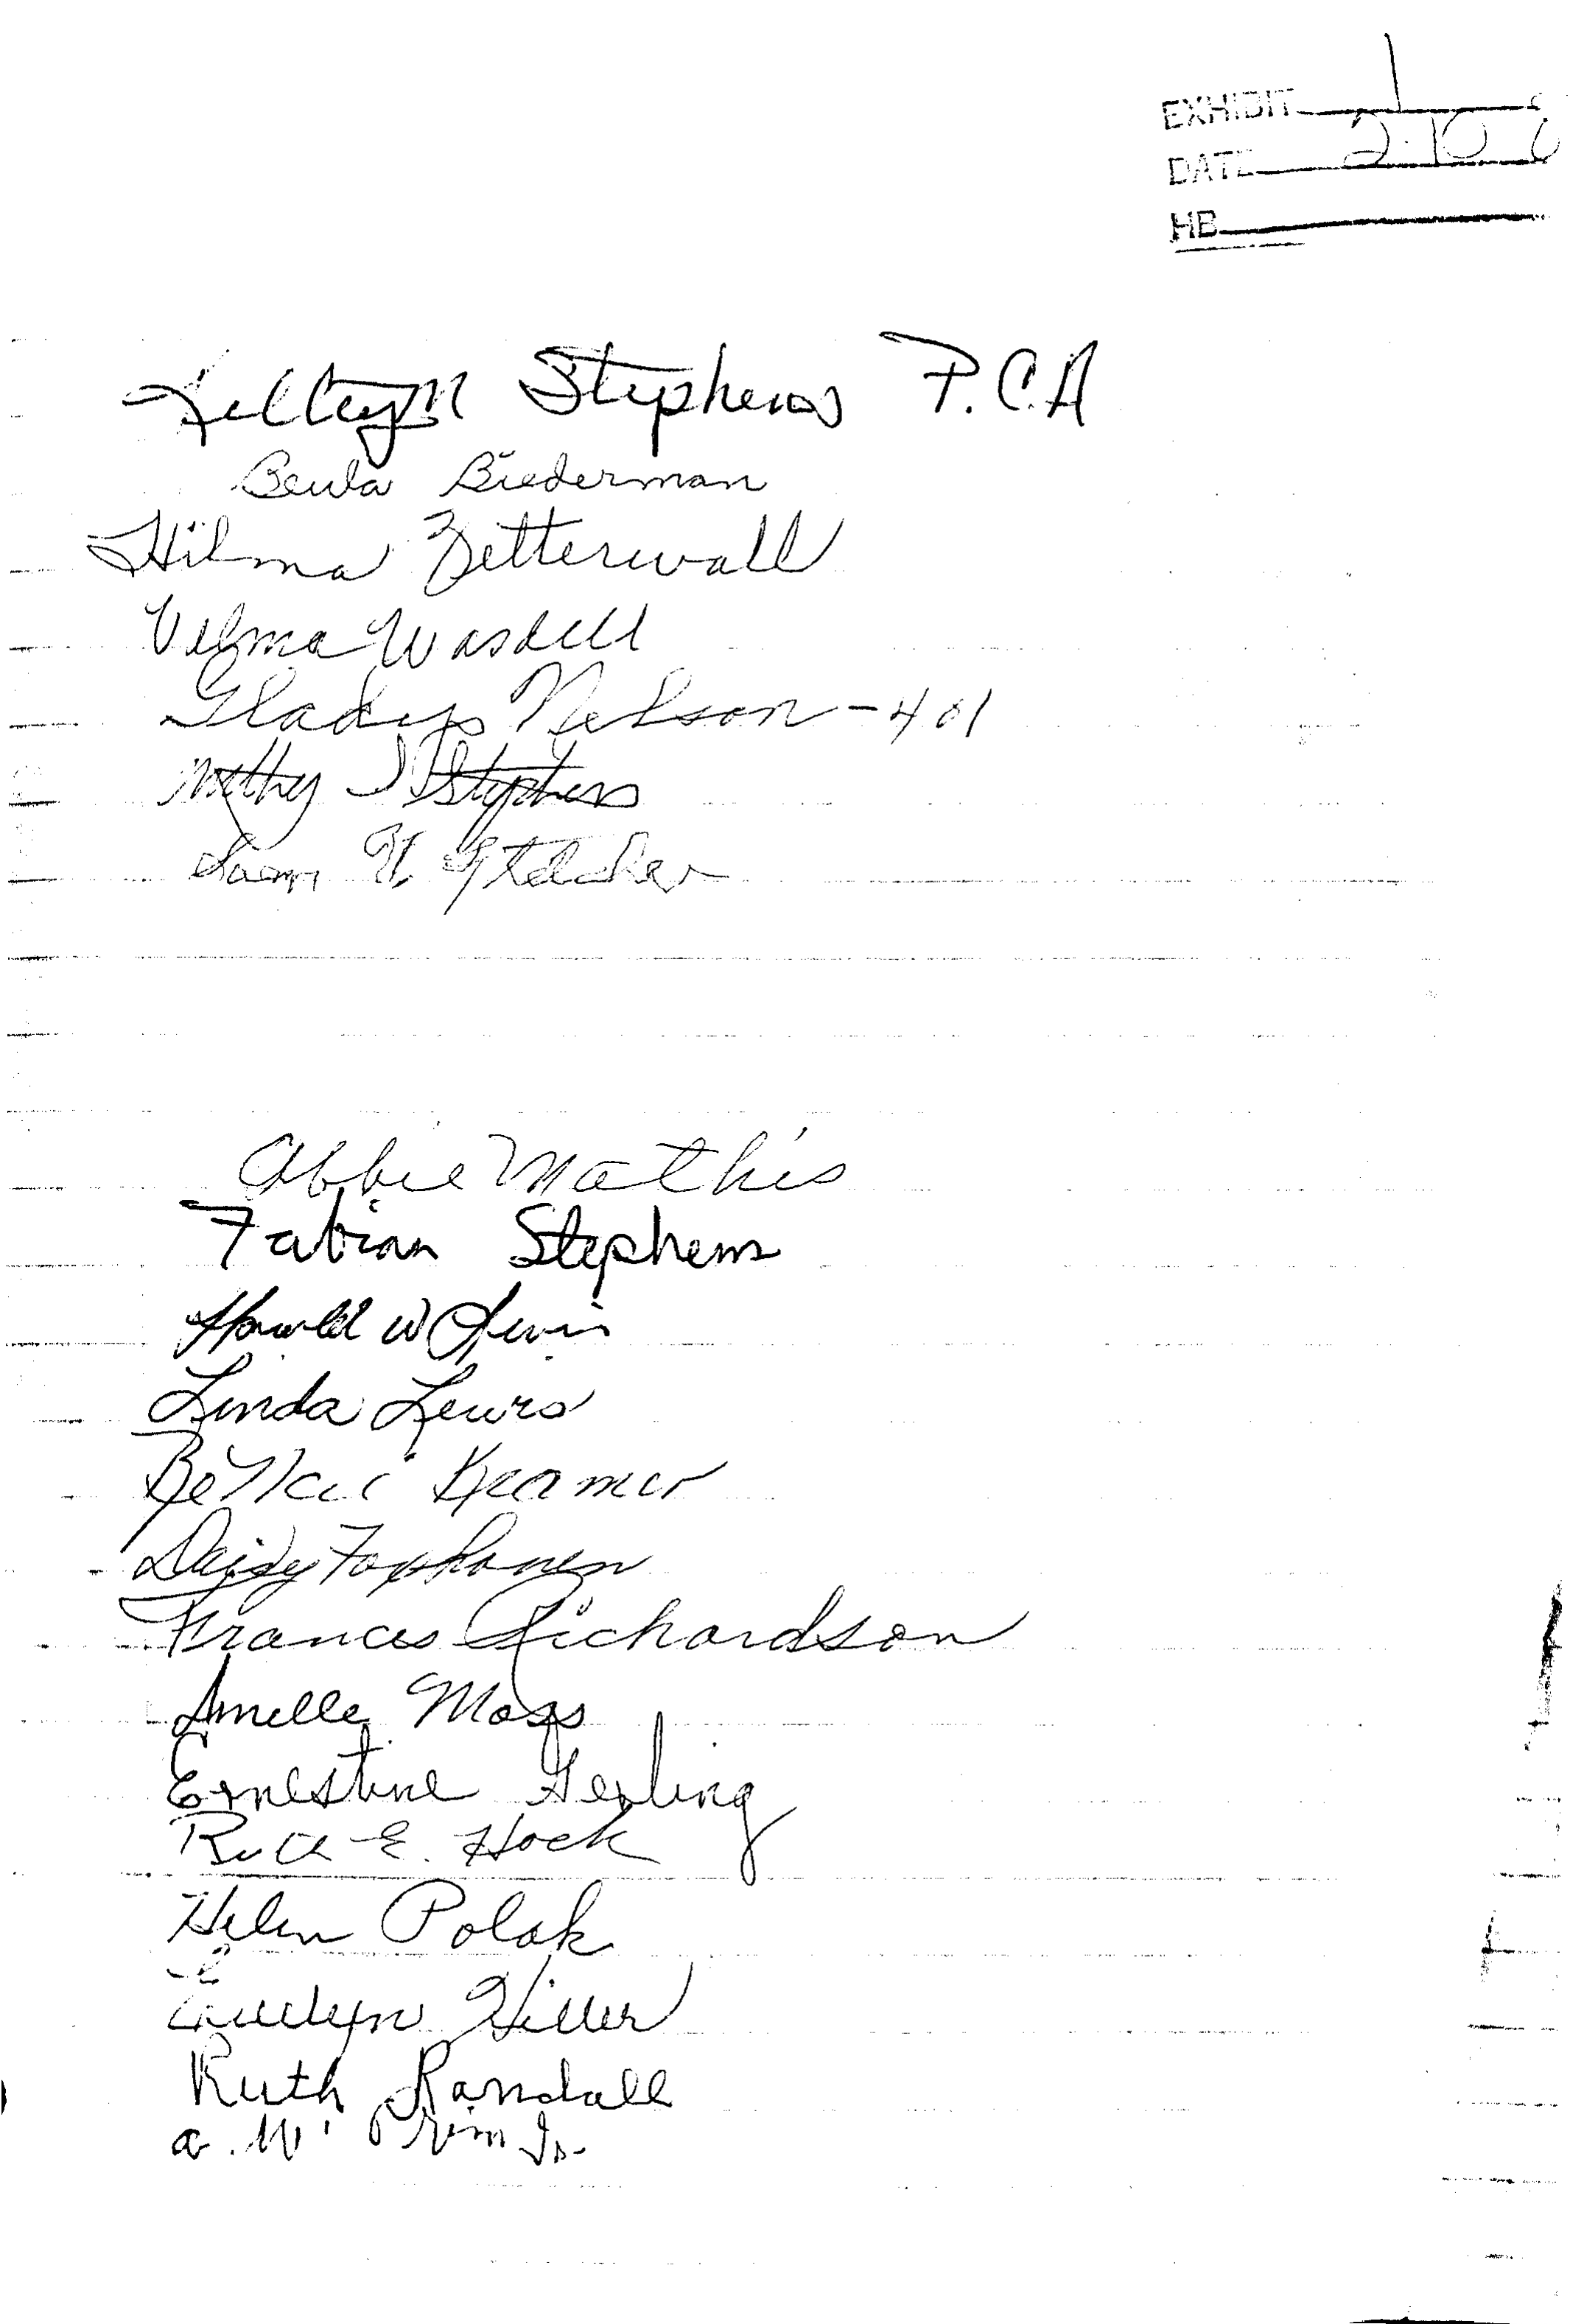 EXHIBIT 1
DATE 2-10
HB
Stephens P.C.A
Beula Biederman
Hilma Zetterwall
Velma Wasdell
Gladys Nelson - 401
Stephens
Abbie Mathis
Fabian Stephens
Harold W Lewis
Linda Lewis
Kramer
Daisy
Frances Richardson
Moss
Ernestine Gerling
Ruth E. Hock
Helen Polak
Evelyn Hiller
Ruth Randall
a. W. Prim Jr.